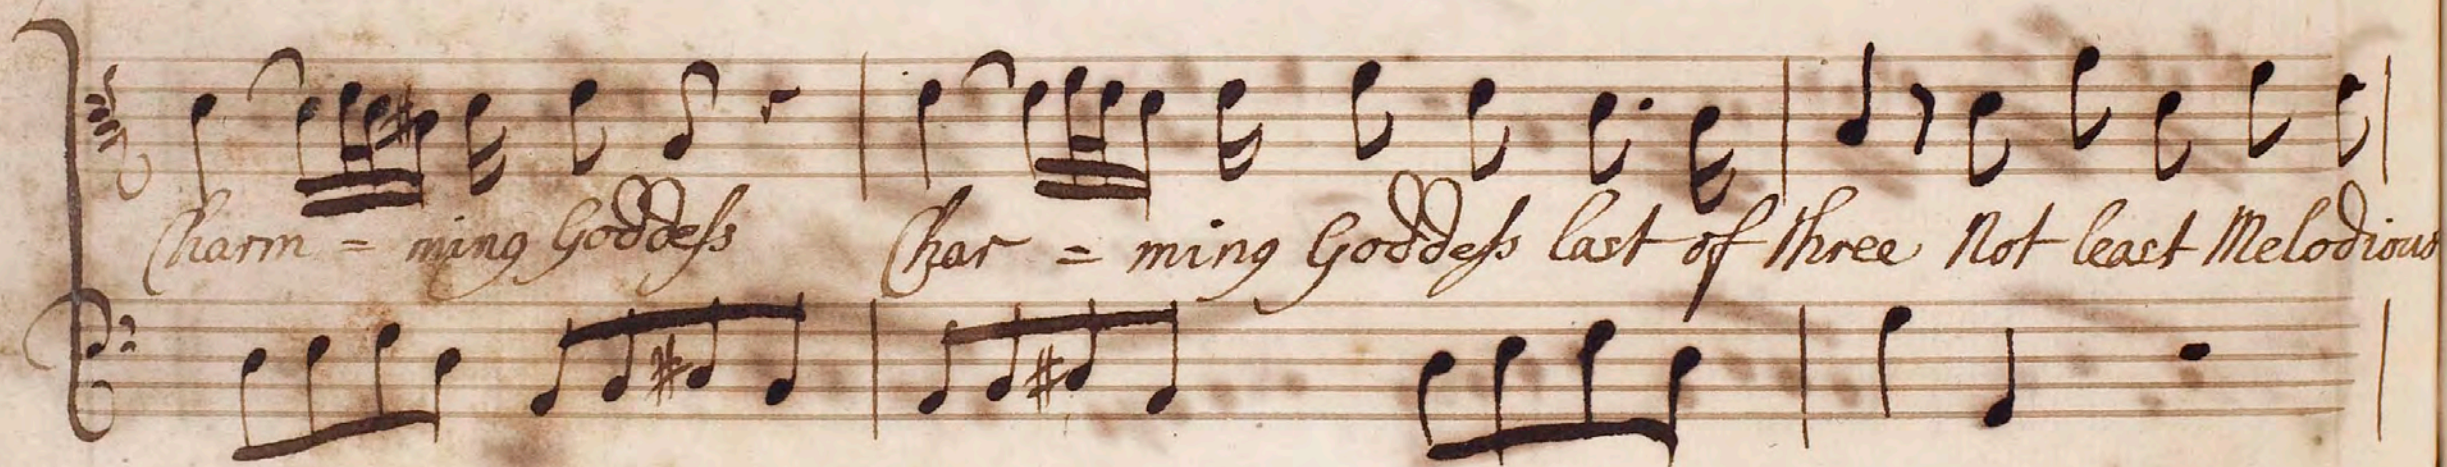 Charm = ming Goddeſs Char = ming Goddeſs last of three Not least Melodious